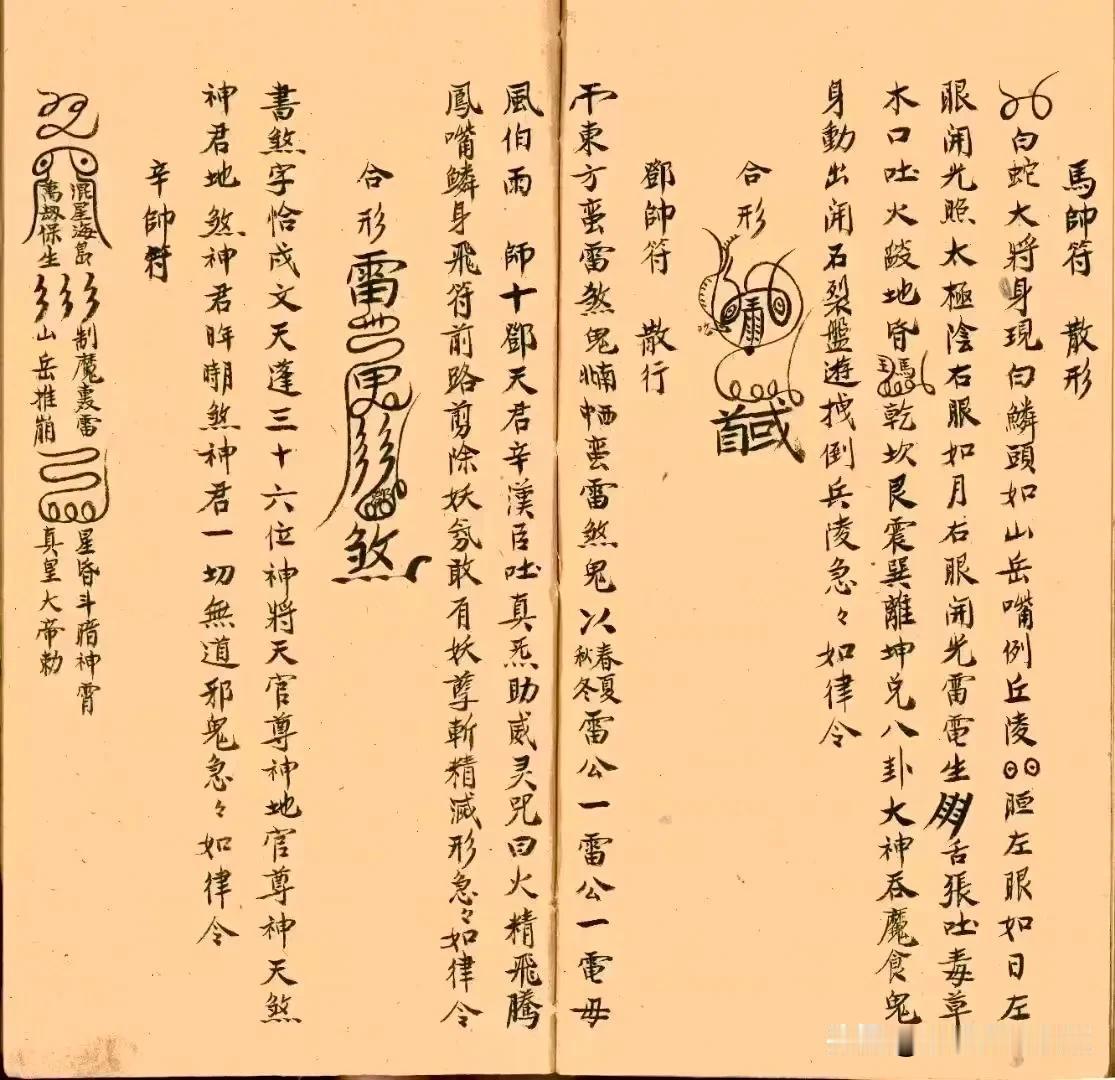 馬帥符 散形
白蛇大將身現白鱗頭如山岳嘴例丘陵 眶左眼如日左
眼開光照太極陰右眼如月右眼開光雷電生 舌張吐毒草
木口吐火𦦨地昏 乾坎艮震巽離坤兌八卦大神吞魔食鬼
身動出開石裂盤遊拽倒兵陵急々如律令
合形
鄧帥符 散行
東方蛮雷煞鬼 蛮雷煞鬼以春夏秋冬雷公一雷公一電母
風伯雨 師十鄧天君辛漢臣吐真炁助威灵咒曰火精飛騰
鳳嘴鱗身飛符前路剪除妖氛敢有妖孽斬精滅形急々如律令
合形
雷
煞
書煞字恰成文天蓬三十六位神將天官尊神地官尊神天煞
神君地煞神君年時煞神君一切無道邪鬼急々如律令
辛帥符
混星海島
萬劫保生
制魔裏雷
山岳摧崩
星昏斗暗神霄
真皇大帝勅